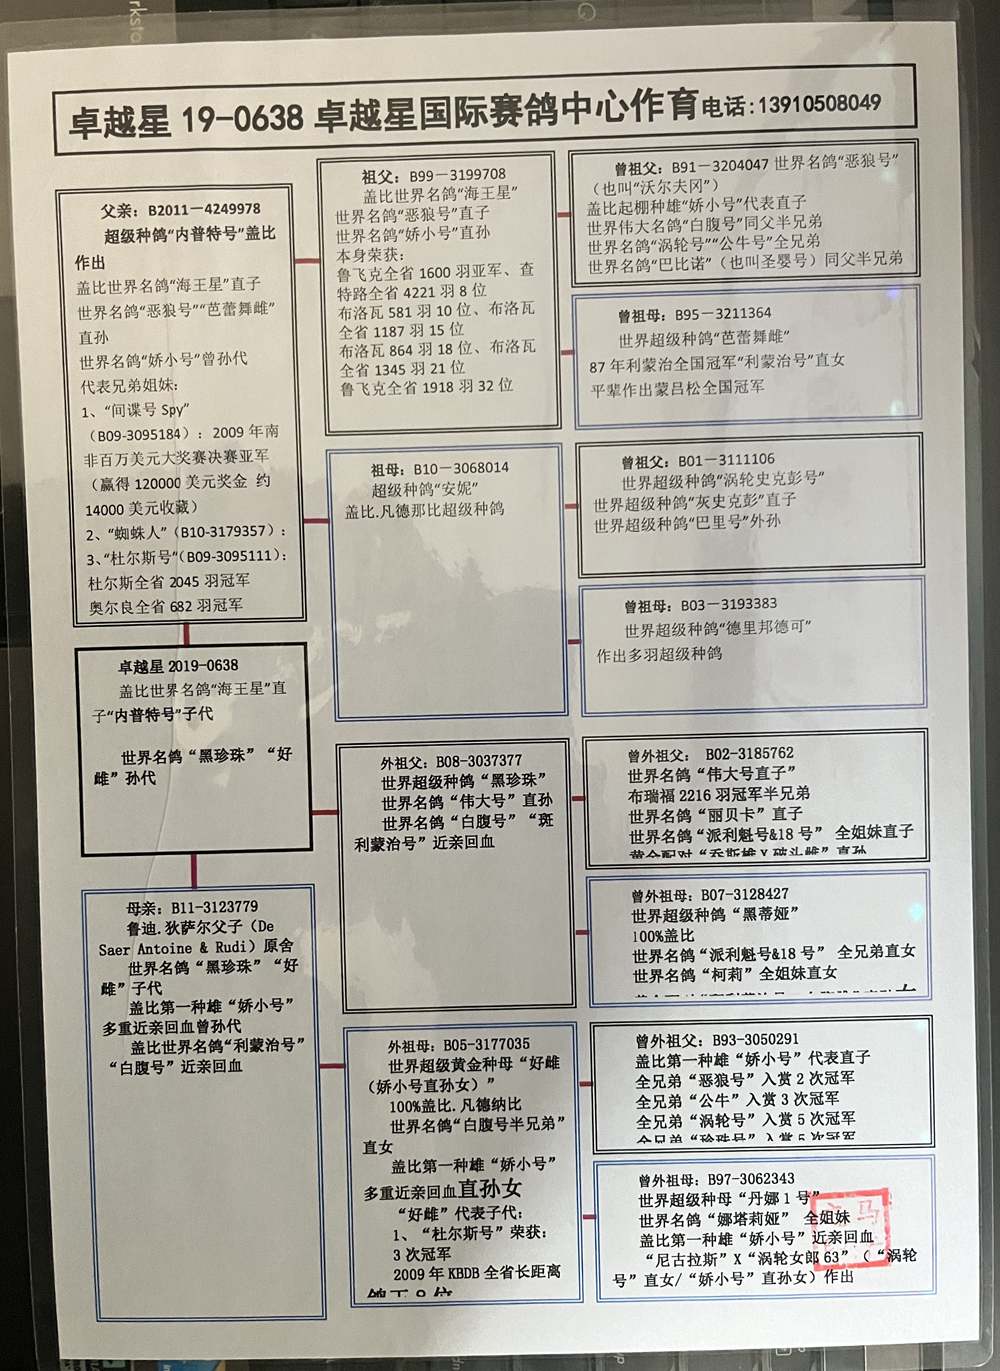 卓越星 19-0638 卓越星国际赛鸽中心作育电话:13910508049
父亲：B2011-4249978
超级种鸽"内普特号"盖比
作出
盖比世界名鸽"海王星"直子
世界名鸽"恶狼号""芭蕾舞雌"
直孙
世界名鸽"娇小号"曾孙代
代表兄弟姐妹：
1、"间谍号 Spy"
（B09-3095184）：2009 年南
非百万美元大奖赛决赛亚军
（赢得 120000 美元奖金 约
14000 美元收藏）
2、"蜘蛛人"（B10-3179357）：
3、"杜尔斯号"（B09-3095111）：
杜尔斯全省 2045 羽冠军
奥尔良全省 682 羽冠军
卓越星 2019-0638
盖比世界名鸽"海王星"直
子"内普特号"子代
世界名鸽"黑珍珠""好
雌"孙代
母亲：B11-3123779
鲁迪.狄萨尔父子（De
Saer Antoine & Rudi）原舍
世界名鸽"黑珍珠""好
雌"子代
盖比第一种雄"娇小号"
多重近亲回血曾孙代
盖比世界名鸽"利蒙治号"
"白腹号"近亲回血
祖父：B99-3199708
盖比世界名鸽"海王星"
世界名鸽"恶狼号"直子
世界名鸽"娇小号"直孙
本身荣获：
鲁飞克全省 1600 羽亚军、查
特路全省 4221 羽 8 位
布洛瓦 581 羽 10 位、布洛瓦
全省 1187 羽 15 位
布洛瓦 864 羽 18 位、布洛瓦
全省 1345 羽 21 位
鲁飞克全省 1918 羽 32 位
祖母：B10-3068014
超级种鸽"安妮"
盖比.凡德那比超级种鸽
外祖父：B08-3037377
世界超级种鸽"黑珍珠"
世界名鸽"伟大号"直孙
世界名鸽"白腹号""斑
利蒙治号"近亲回血
外祖母：B05-3177035
世界超级黄金种母"好雌
（娇小号直孙女）"
100%盖比.凡德纳比
世界名鸽"白腹号半兄弟"
直女
盖比第一种雄"娇小号"
多重近亲回血直孙女
"好雌"代表子代：
1、"杜尔斯号"荣获：
3 次冠军
2009 年 KBDB 全省长距离
曾祖父：B91-3204047 世界名鸽"恶狼号"
（也叫"沃尔夫冈"）
盖比起棚种雄"娇小号"代表直子
世界伟大名鸽"白腹号"同父半兄弟
世界名鸽"涡轮号""公牛号"全兄弟
世界名鸽"巴比诺"（也叫圣婴号）同父半兄弟
曾祖母：B95-3211364
世界超级种鸽"芭蕾舞雌"
87 年利蒙治全国冠军"利蒙治号"直女
平辈作出蒙吕松全国冠军
曾祖父：B01-3111106
世界超级种鸽"涡轮史克彭号"
世界超级种鸽"灰史克彭"直子
世界超级种鸽"巴里号"外孙
曾祖母：B03-3193383
世界超级种鸽"德里邦德可"
作出多羽超级种鸽
曾外祖父： B02-3185762
世界名鸽"伟大号直子"
布瑞福 2216 羽冠军半兄弟
世界名鸽"丽贝卡"直子
世界名鸽"派利魁号&18 号" 全姐妹直子
黄金配对"乔斯雄 X 破斗雌"直孙
曾外祖母：B07-3128427
世界超级种鸽"黑蒂娅"
100%盖比
世界名鸽"派利魁号&18 号" 全兄弟直女
世界名鸽"柯莉"全姐妹直女
曾外祖父：B93-3050291
盖比第一种雄"娇小号"代表直子
全兄弟"恶狼号"入赏 2 次冠军
全兄弟"公牛"入赏 3 次冠军
全兄弟"涡轮号"入赏 5 次冠军
全兄弟"珍珠号"入赏 5 次冠军
曾外祖母：B97-3062343
世界超级种母"丹娜 1 号"
世界名鸽"娜塔莉娅" 全姐妹
盖比第一种雄"娇小号"近亲回血
"尼古拉斯"X"涡轮女郎 63"（"涡轮
号"直女/"娇小号"直孙女）作出